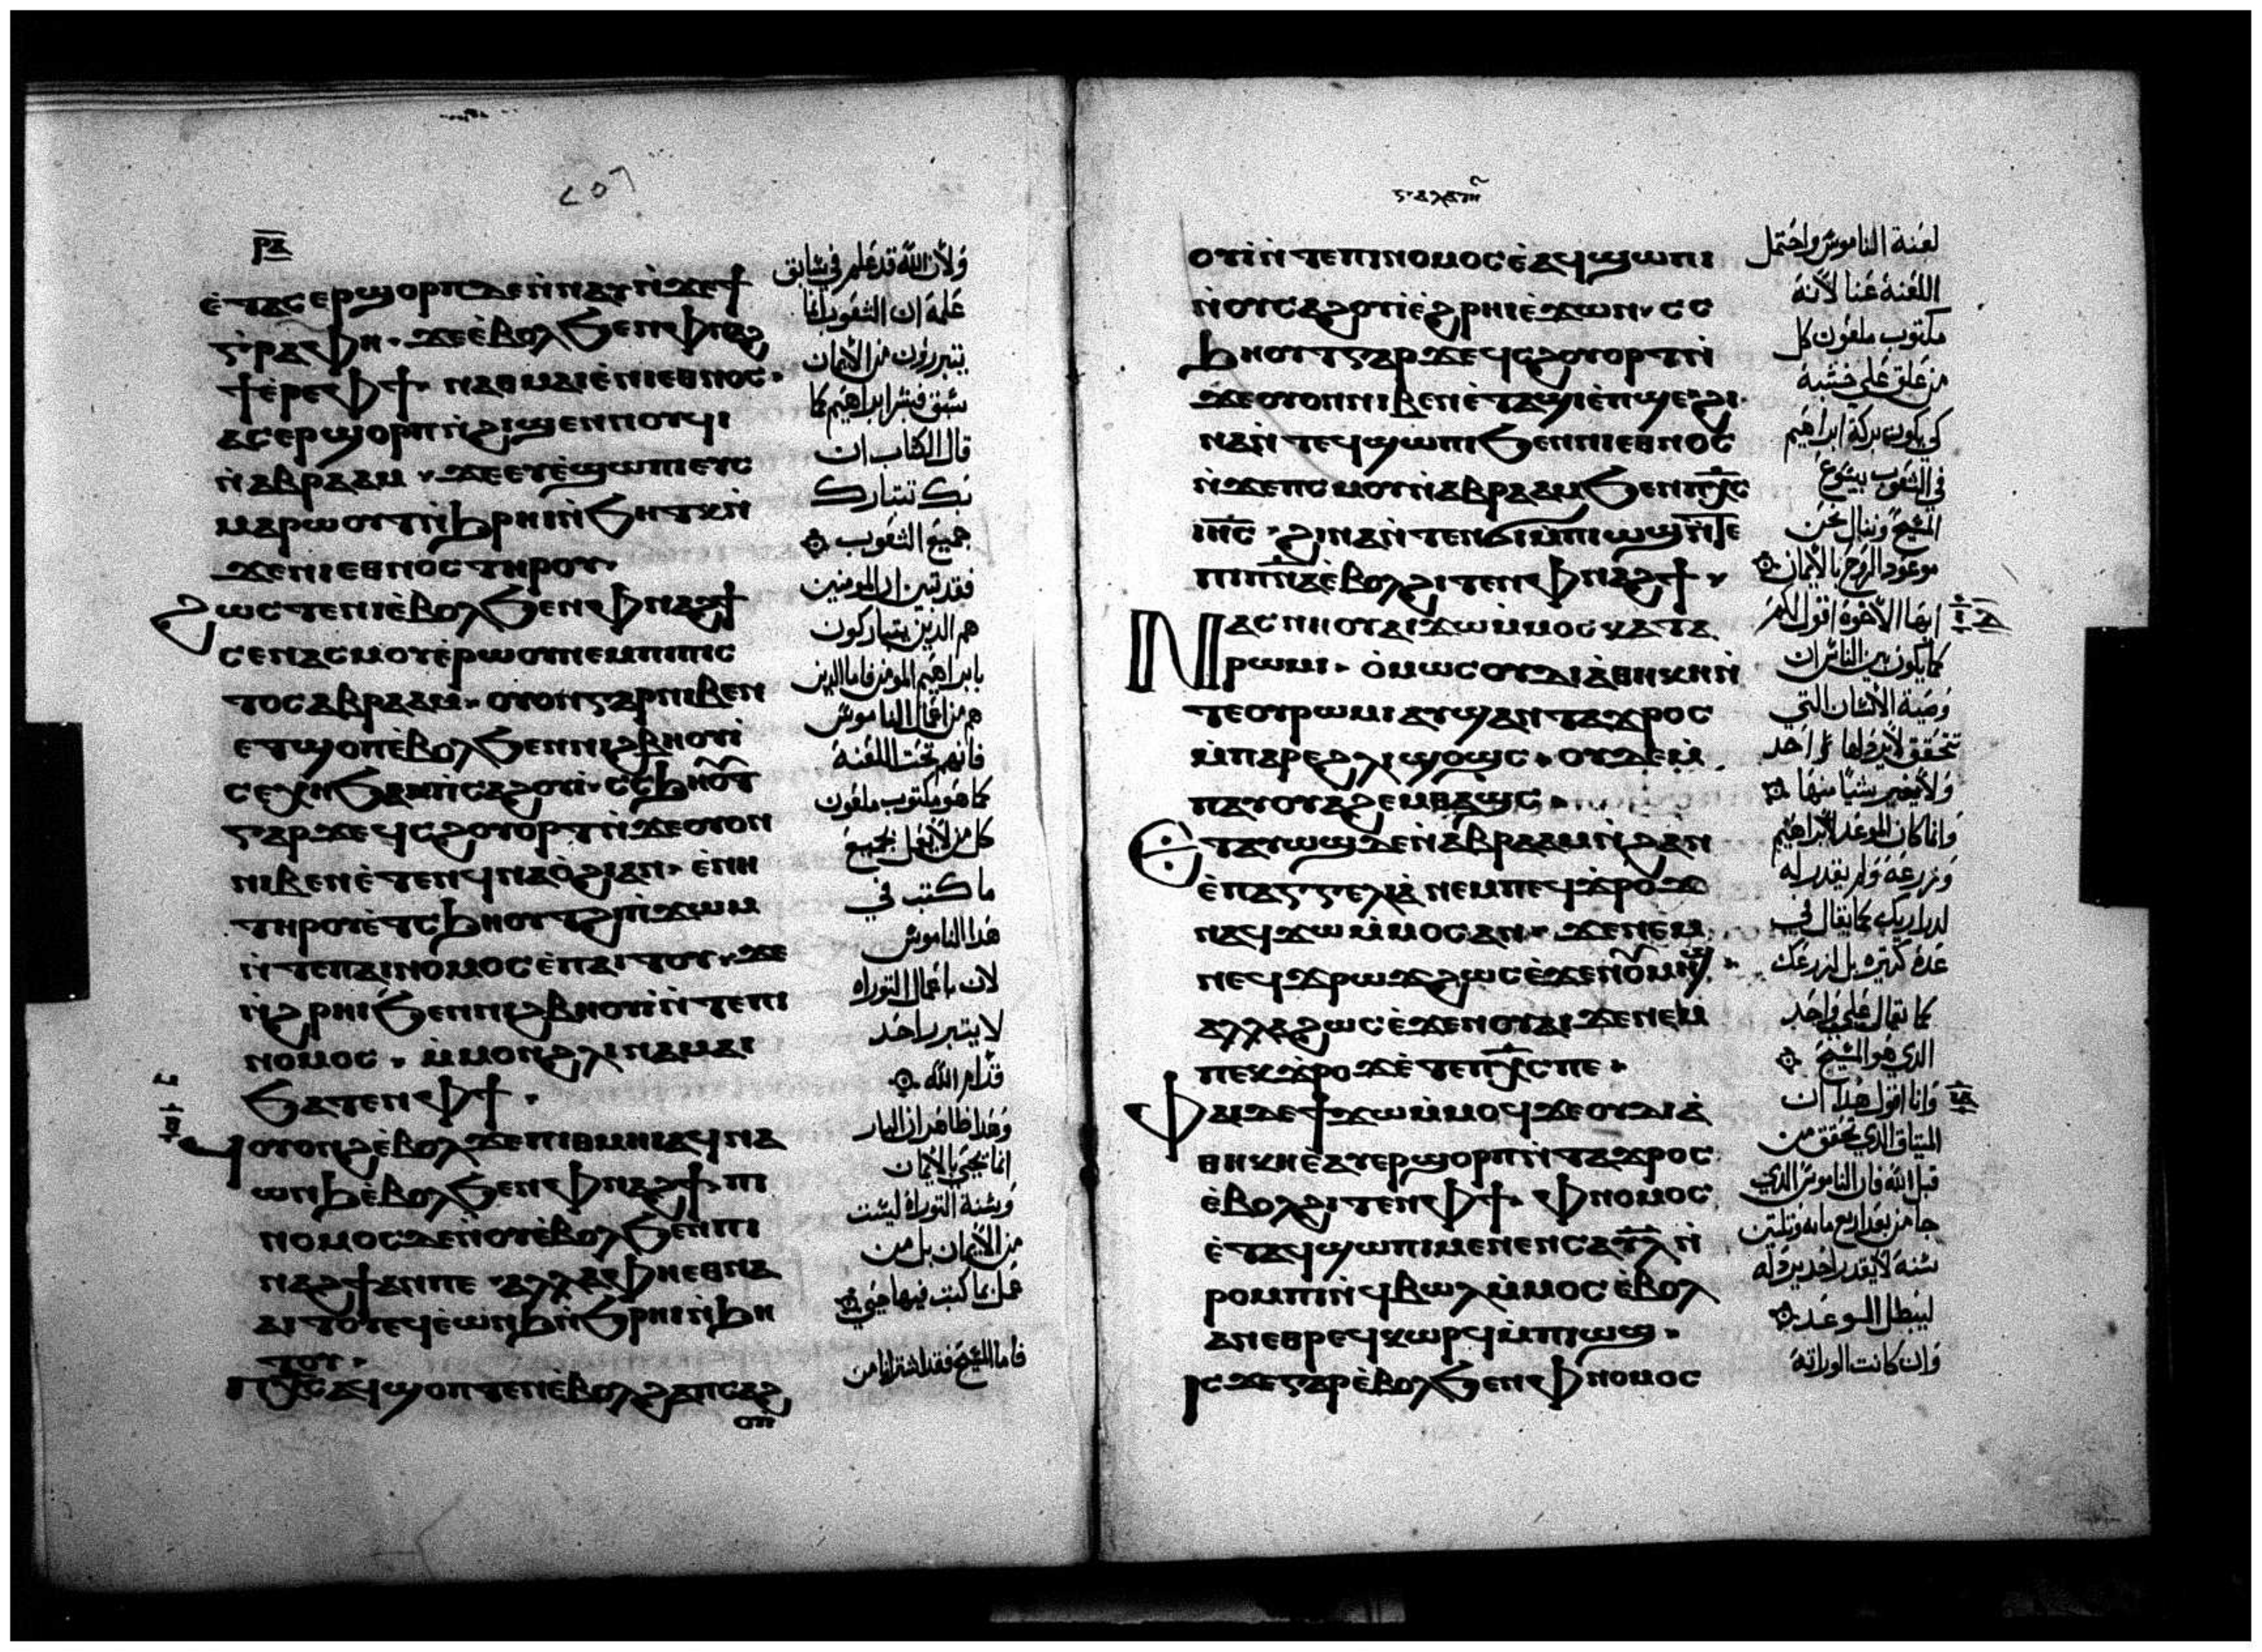 ⲣⲁ
ⲉ̀ⲧⲁⲥⲉⲣϣⲟⲣⲡ ⲇⲉ ⲛ̀ⲛⲁⲩ ⲛ̀ϫⲉϯ
ⲅ̀ⲣⲁⲫⲏ · ϫⲉ ⲉ̀ⲃⲟⲗ ϧⲉⲛ ⲫⲛⲁϩ
ϯ ⲉ̀ⲣⲉ ⲫϯ ⲛⲁⲑⲙⲁⲓⲉ ⲛⲓⲉⲑⲛⲟⲥ ·
ⲁⲥⲉⲣϣⲟⲣⲡ ⲛ̀ϩⲓϣⲉⲛⲛⲟⲩϥⲓ
ⲛ̀ⲁⲃⲣⲁⲁⲙ · ϫⲉ ⲉⲩⲉ̀ϣⲱⲡⲓ ⲉⲩⲥ
ⲙⲁⲣⲱⲟⲩⲧ ⲛ̀ϩⲣⲏⲓ ⲛ̀ϧⲏⲧⲕ ⲛ̀
ϫⲉⲛⲓⲉⲑⲛⲟⲥ ⲧⲏⲣⲟⲩ ·
ϩⲱⲥⲧⲉ ⲛⲓⲉ̀ⲃⲟⲗ ϧⲉⲛ ⲫⲛⲁϩϯ
ⲥⲉⲛⲁⲥⲙⲟⲩ ⲉ̀ⲣⲱⲟⲩ ⲛⲉⲙ ⲡⲓⲡⲓⲥ
ⲧⲟⲥ ⲁⲃⲣⲁⲁⲙ · ⲟⲩⲟⲛ ⲅⲁⲣ ⲛⲓⲃⲉⲛ
ⲉⲧϣⲟⲡ ⲉ̀ⲃⲟⲗ ϧⲉⲛ ⲛⲓϩⲃⲏⲟⲩⲓ̀
ⲥⲉⲭⲏ ϧⲁ ⲡⲓⲥⲁϩⲟⲩⲓ̀ · ⲥⲥϧⲏⲟⲩⲧ
ⲅⲁⲣ ϫⲉ ϥⲥϩⲟⲩⲟⲣⲧ ⲛ̀ϫⲉⲟⲩⲟⲛ
ⲛⲓⲃⲉⲛ ⲉ̀ⲧⲉⲛϥⲛⲁⲟ̀ϩⲓ ⲁⲛ · ⲉ̀ⲛⲏ
ⲧⲏⲣⲟⲩ ⲉ̀ⲧⲥϧⲏⲟⲩⲧ ϩⲓ ⲡ̀ϫⲱⲙ
ⲛ̀ⲧⲉ ⲡⲁⲓⲛⲟⲙⲟⲥ ⲉ̀ⲡⲁⲓⲧⲟⲩ · ϫⲉ
ⲛ̀ϩⲣⲏⲓ ϧⲉⲛ ⲛⲓϩⲃⲏⲟⲩⲓ̀ ⲛ̀ⲧⲉ ⲡⲓ
ⲛⲟⲙⲟⲥ · ⲙ̀ⲙⲟⲛ ϩⲗⲓ ⲛⲁⲙⲁⲓ
ϧⲁⲧⲉⲛ ⲫϯ ·
ϥⲟⲩⲟⲛϩ ⲉ̀ⲃⲟⲗ ϫⲉ ⲡⲓⲑⲙⲏⲓ ⲁϥⲛⲁ
ⲱⲛϧ ⲉ̀ⲃⲟⲗ ϧⲉⲛ ⲫⲛⲁϩϯ · ⲡⲓ
ⲛⲟⲙⲟⲥ ⲇⲉ ⲛ̀ⲟⲩⲉ̀ⲃⲟⲗ ϧⲉⲛ ⲡⲓ
ⲛⲁϩϯ ⲁⲛ ⲡⲉ · ⲁⲗⲗⲁ ⲫⲏⲉⲑⲛⲁ
ⲁⲓⲧⲟⲩ ⲉϥⲉ̀ⲱⲛϧ ⲛ̀ϧⲣⲏⲓ ⲛ̀ϧⲏ
ⲧⲟⲩ ·
ⲡⲭ̅ⲥ̅ ⲁϥϣⲟⲡⲧⲉⲛ ⲉ̀ⲃⲟⲗ ϩⲁ ⲡⲥⲁϩ
ⲟⲩⲓ̀
ولان الله قد علم في سابق
علمه ان الشعوب انما
يتبررون من الايمان
سبق فبشر ابراهيم كما
قال الكتاب ان
بك تتبارك
جميع الشعوب
فقد تبين ان المومنين
هم الذين يتباركون
بابراهيم المومن فاما الذين
هم من اعمال الناموس
فانهم تحت اللعنة
كما هو مكتوب ملعون
كل من لا يعمل بجميع
ما كتب في
هذا الناموس
لان باعمال التوراه
لا يتبرر احد
قدام الله
وهذا ظاهر ان البار
انما يحيي بالايمان
وسنة التوراه ليست
من الايمان بل من
عمل بما كتب فيها حيي
فاما المسيح فقد اشترانا من
ⲅⲁⲗⲁⲧⲏ
ⲟⲩⲓ̀ ⲛ̀ⲧⲉ ⲡⲓⲛⲟⲙⲟⲥ ⲉ̀ⲁϥϣⲱⲡⲓ
ⲛ̀ⲟⲩⲥⲁϩⲟⲩⲓ̀ ⲉ̀ϩⲣⲏⲓ ⲉ̀ϫⲱⲛ · ⲥⲥ
ϧⲏⲟⲩⲧ ⲅⲁⲣ ϫⲉ ϥⲥϩⲟⲩⲟⲣⲧ ⲛ̀
ϫⲉⲟⲩⲟⲛ ⲛⲓⲃⲉⲛ ⲉ̀ⲧⲁϣⲓ ⲉ̀ⲡϣⲉ · ϩⲓ
ⲛⲁ ⲛ̀ⲧⲉϥϣⲱⲡⲓ ϧⲉⲛ ⲛⲓⲉⲑⲛⲟⲥ
ⲛ̀ϫⲉⲡⲥⲙⲟⲩ ⲛ̀ⲁⲃⲣⲁⲁⲙ ϧⲉⲛ ⲡⲭ̅ⲥ̅
ⲓⲏ̅ⲥ̅ · ϩⲓⲛⲁ ⲛ̀ⲧⲉⲛϭⲓ ⲙ̀ⲡⲓⲱϣ ⲛ̀ⲧⲉ
ⲡⲓⲡ̅ⲛ̅ⲁ̅ ⲉ̀ⲃⲟⲗ ϩⲓⲧⲉⲛ ⲫⲛⲁϩϯ ·
ⲛⲁⲥⲛⲏⲟⲩ ⲁⲓϫⲱ ⲙ̀ⲙⲟⲥ ⲕⲁⲧⲁ
ⲣⲱⲙⲓ · ⲟ̀ⲙⲱⲥ ⲟⲩⲇⲓⲁ̀ⲑⲏⲕⲏ ⲛ̀
ⲧⲉ ⲟⲩⲣⲱⲙⲓ ⲁⲩϣⲁⲛⲧⲁϫⲣⲟⲥ
ⲙ̀ⲡⲁⲣⲉ ϩⲗⲓ ϣⲟϣⲥ · ⲟⲩⲇⲉ ⲙ̀
ⲡⲁⲩⲟⲩⲁϩⲉⲙⲑⲁϣⲥ ·
ⲉⲧⲁⲩⲱϣ ⲇⲉ ⲛ̀ⲁⲃⲣⲁⲁⲙ ⲛ̀ϩⲁⲛ
ⲉ̀ⲡⲁⲅⲅⲉⲗⲓⲁ̀ ⲛⲉⲙ ⲡⲉϥϫ̀ⲣⲟϫ
ⲛⲁϥϫⲱ ⲙ̀ⲙⲟⲥ ⲁⲛ · ϫⲉ ⲛⲉⲙ
ⲛⲉϥϫⲣⲱϫ ϩⲱⲥ ⲉ̀ϫⲉⲛ ⲟⲩⲙⲏϣ ·
ⲁⲗⲗⲁ ϩⲱⲥ ⲉ̀ϫⲉⲛ ⲟⲩⲁⲓ ϫⲉ ⲛⲉⲙ
ⲡⲉⲕϫ̀ⲣⲟϫ ⲉ̀ⲧⲉ ⲡⲭ̅ⲥ̅ ⲡⲉ ·
ⲫⲁⲓ ⲇⲉ ϯϫⲱ ⲙ̀ⲙⲟϥ ϫⲉ ⲟⲩⲇⲓⲁ̀
ⲑⲏⲕⲏ ⲉ̀ⲁⲩⲉⲣϣⲟⲣⲡ ⲛ̀ⲧⲁϫⲣⲟⲥ
ⲉ̀ⲃⲟⲗ ϩⲓⲧⲉⲛ ⲫϯ · ⲫⲛⲟⲙⲟⲥ
ⲉ̀ⲧⲁϥϣⲱⲡⲓ ⲙⲉⲛⲉⲛⲥⲁ ⲩ̅ⲗ̅ ⲛ̀
ⲣⲟⲙⲡⲓ ⲛ̀ϥⲃⲱⲗ ⲙ̀ⲙⲟⲥ ⲉ̀ⲃⲟⲗ
ⲁⲛ ⲉⲑⲣⲉϥⲕⲱⲣϥ ⲙ̀ⲡⲓⲱϣ ·
ⲓⲥϫⲉ ⲅⲁⲣ ⲉ̀ⲃⲟⲗ ϧⲉⲛ ⲫⲛⲟⲙⲟⲥ
لعنة الناموس واحتمل
اللعنة عنا لانه
مكتوب ملعون كل
من علق علي خشبة
كي يكون بركة ابراهيم
في الشعوب بيسوع
المسيح وننال نحن
موعود الروح بالايمان
ايها الاخوة اقول لكم
كما يكون بين الناس ان
وصية الانسان التي
تتحقق لا يرذلها احد
ولا يغير شيا منها
وانما كان الموعد لابراهيم
وزرعه ولم يقل له
لذراريك كما يقال في
عدة كثيره بل لزرعك
كما يقال علي واحد
الذي هو المسيح
وانا اقول هذا ان
الميثاق الذي تحقق من
قبل الله فان الناموس الذي
جا من بعد اربع مايه وثلثين
سنة لا يقدر احد يرذله
ليبطل الوعد
وان كانت الوراثة